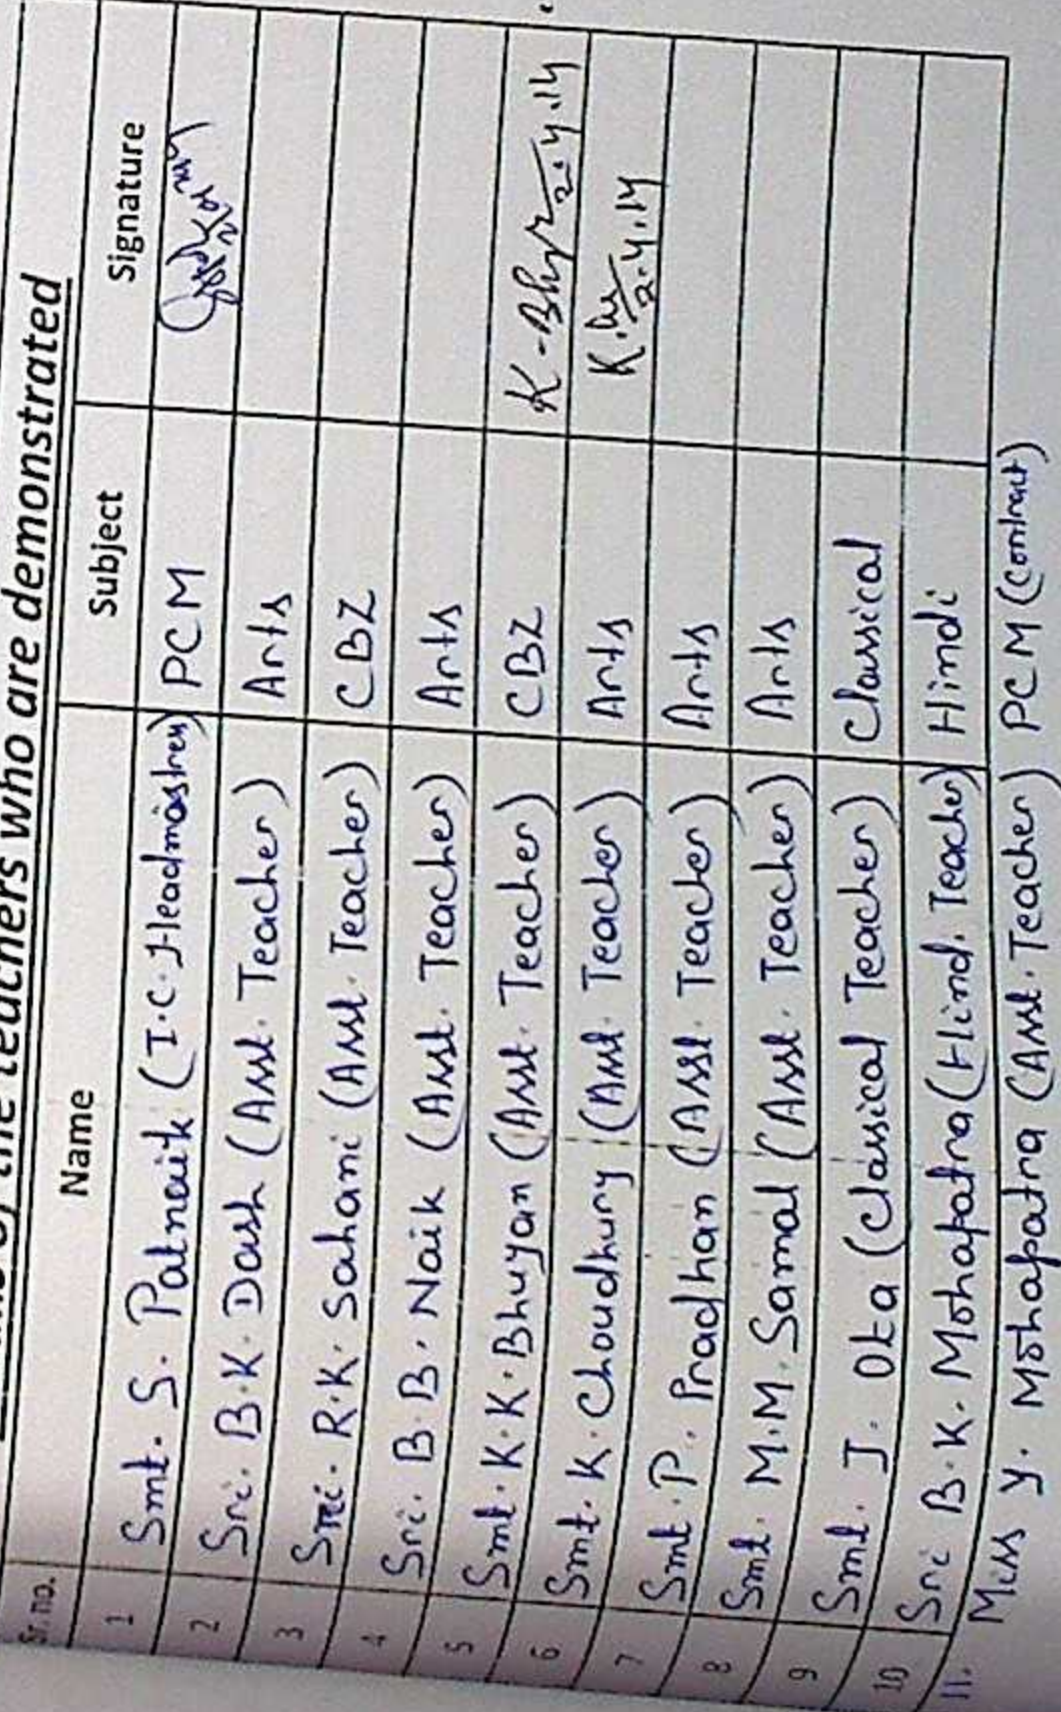 the teachers who are demonstrated
Sr. no. Name Subject Signature
1 Smt. S. Patnaik (I.C. Headmistress) PCM
2 Sri. B.K. Dash (Asst. Teacher) Arts
3 Sri. R.K. Sahani (Asst. Teacher) CBZ
4 Sri. B.B. Naik (Asst. Teacher) Arts
5 Smt. K.K. Bhuyan (Asst. Teacher) CBZ K. Bhyn 2.4.14
6 Smt. K. Choudhury (Asst. Teacher) Arts 2.4.14
7 Smt. P. Pradhan (Asst. Teacher) Arts
8 Smt. M.M. Samal (Asst. Teacher) Arts
9 Smt. J. Ota (Classical Teacher) Classical
10 Sri B.K. Mohapatra (Hind. Teacher) Hindi
11. Miss Y. Mohapatra (Asst. Teacher) PCM (contract)